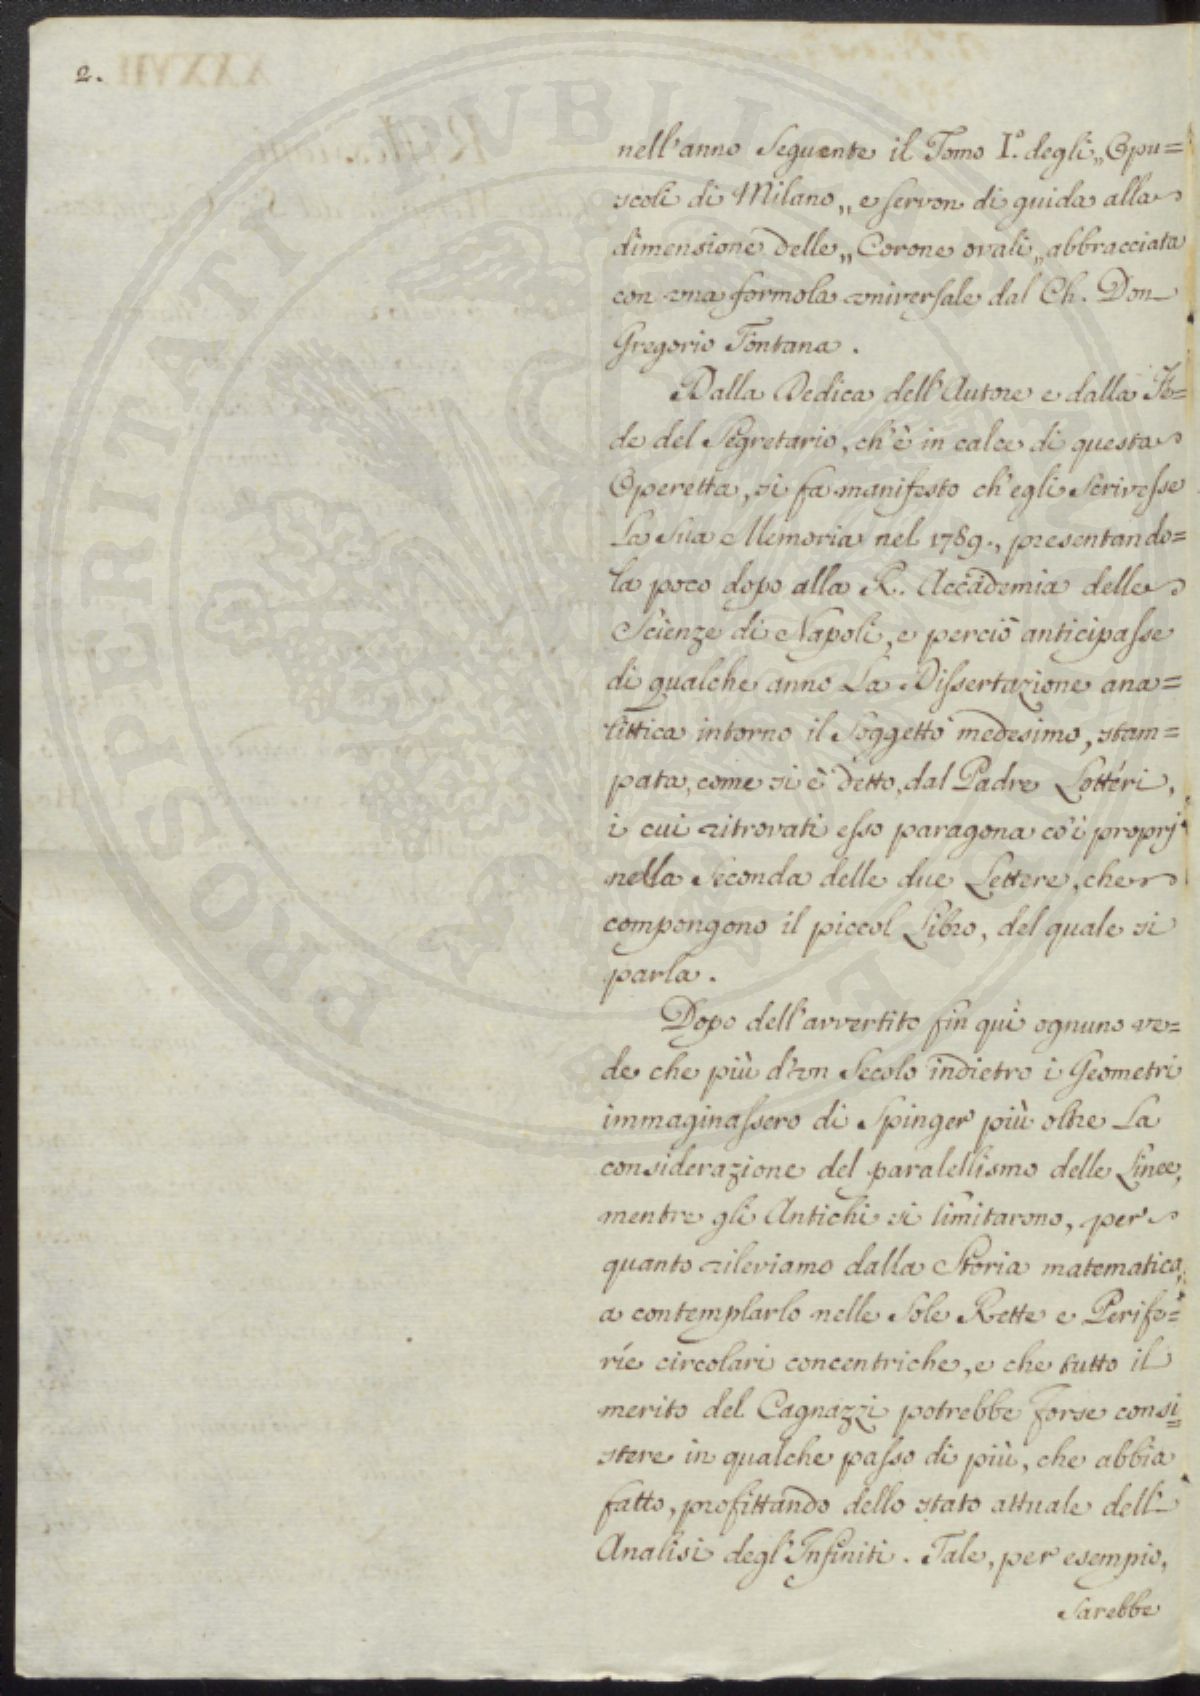 2.
nell'anno Seguente il Tomo I.° degli „Opu=
scoli di Milano„ e servon di guida alla
dimensione delle „Corone ovali„ abbracciata
con una formola universale dal Ch. Don
Gregorio Fontana.
Dalla Dedica dell'Autore e dalla Fe=
de del Segretario, ch'è in calce di questa
Operetta, si fa manifesto ch'egli Scrivesse
la Sua Memoria nel 1789., presentando=
la poco dopo alla R. Accademia delle
Scienze di Napoli, e perciò anticipasse
di qualche anno La Dissertazione ana=
littica intorno il Soggetto medesimo, stam=
pata, come si è detto, dal Padre Lottéri,
i cui ritrovati esso paragona co'i proprj
nella Seconda delle due Lettere, che
compongono il piccol Libro, del quale si
parla.
Dopo dell'avvertito fin quì ognuno ve=
de che più d'un Secolo indietro i Geometri
immaginassero di Spinger più oltre La
considerazione del paralellismo delle Linee,
mentre gli Antichi si limitarono, per
quanto rileviamo dalla Storia matematica,
a contemplarlo nelle Sole Rette e Perife=
ríe circolari concentriche, e che tutto il
merito del Cagnazzi potrebbe forse consi=
stere in qualche passo di più, che abbia
fatto, profittando dello stato attuale dell'
Analisi degl'Infiniti. Tale, per esempio,
Sarebbe
PROSPERITATI PUBLICAE